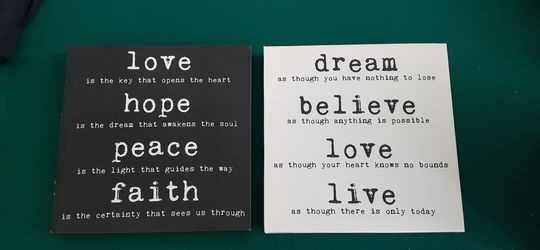 love
is the key that opens the heart
hope
is the dream that awakens the soul
peace
is the light that guides the way
faith
is the certainty that sees us through
dream
as though you have nothing to lose
believe
as though anything is possible
love
as though your heart knows no bounds
live
as though there is only today